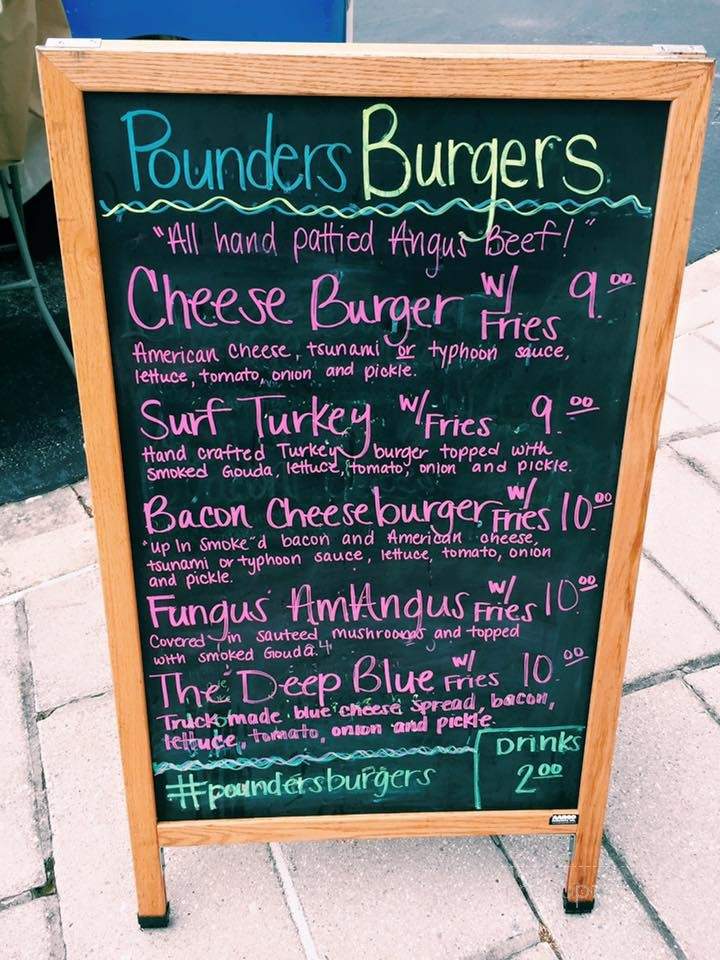 Pounders Burgers
"All hand pattied Angus Beef!"
Cheese Burger w/ Fries 9.00
American cheese, tsunami or typhoon sauce,
lettuce, tomato, onion and pickle.
Surf Turkey w/ Fries 9.00
Hand crafted Turkey burger topped with
smoked Gouda, lettuce, tomato, onion and pickle.
Bacon Cheeseburger w/ Fries 10.00
"up In Smoke"d bacon and American cheese,
tsunami or typhoon sauce, lettuce, tomato, onion
and pickle.
Fungus AmAngus w/ Fries 10.00
Covered in sauteed mushrooms and topped
with smoked Gouda.
The Deep Blue w/ Fries 10.00
Truck made blue cheese spread, bacon,
lettuce, tomato, onion and pickle.
#poundersburgers
Drinks
2.00